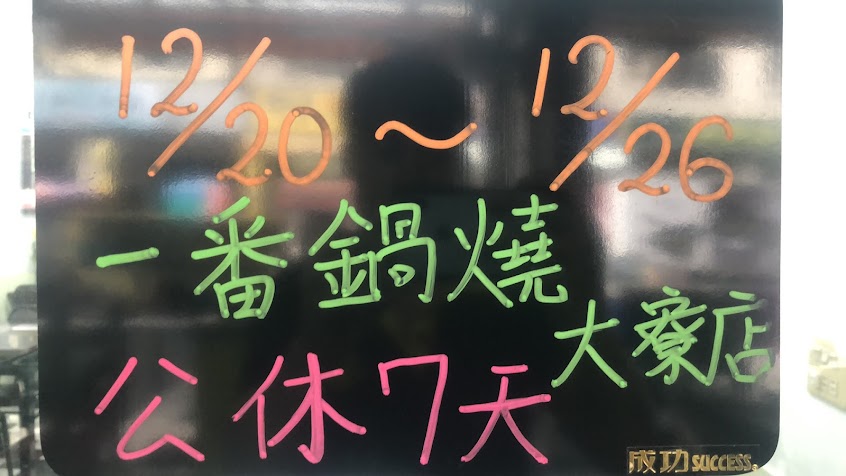 12/20～12/26
一番鍋燒
大寮店
公休7天
成功 SUCCESS.